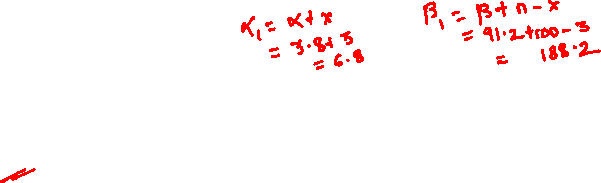 α₁ = α + x
= 3.8 + 3
= 6.8
β₁ = β + n - x
= 91.2 + 100 - 3
= 188.2